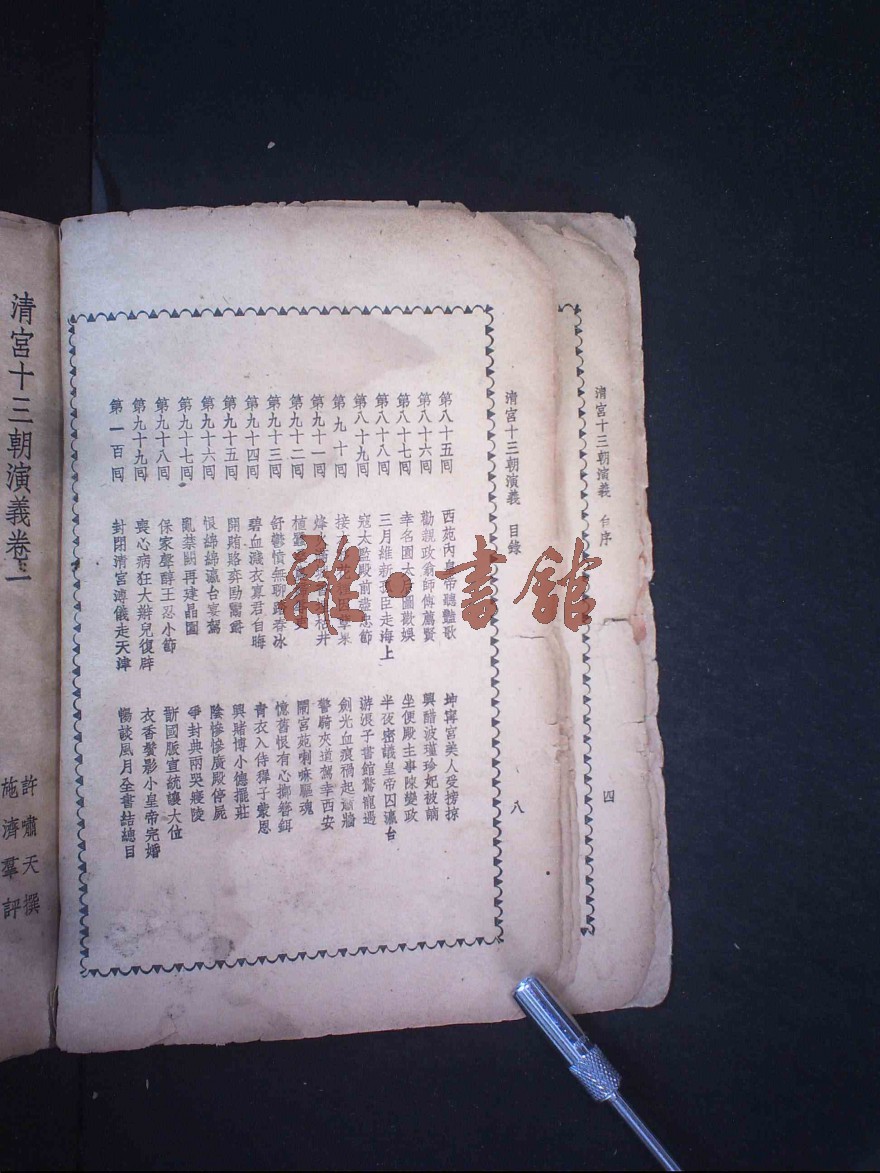 清宮十三朝演義 台序
四
清宮十三朝演義 目錄
八
第八十五囘 西苑內皇帝聽豔歌 坤寧宮美人受搒掠
第八十六囘 勸親政翁師傅薦賢 興醋波瑾珍妃被謫
第八十七囘 幸名園太后圖歡娛 坐便殿主事陳變政
第八十八囘 三月維新孤臣走海上 半夜密議皇帝囚瀛台
第八十九囘 寇太監殿前盡忠節 游浪子書館驚寵遇
第九十囘 接 劍光血痕禍起蕭牆
第九十一囘 烽 井 警騎夾道駕幸西安
第九十二囘 植 鬧宮苑喇嘛驅魂
第九十三囘 舒鬱憤無聊踏春冰 憶舊恨有心擲簪鉺
第九十四囘 碧血濺衣寞君自晦 青衣入侍獐子蒙恩
第九十五囘 開賄賂弈劻鬻爵 興賭博小德擺莊
第九十六囘 恨綿綿瀛台宴駕 陰慘慘廣殿停屍
第九十七囘 亂禁闕再建晶園 爭封典兩哭寢陵
第九十八囘 保家聲醇王忍小節 斷國脈宣統讓大位
第九十九囘 喪心病狂大辮兒復辟 衣香鬢影小皇帝完婚
第一百囘 封閉清宮溥儀走天津 暢談風月全書結總目
清宮十三朝演義卷一
許嘯天撰
施濟羣評
雜·書館